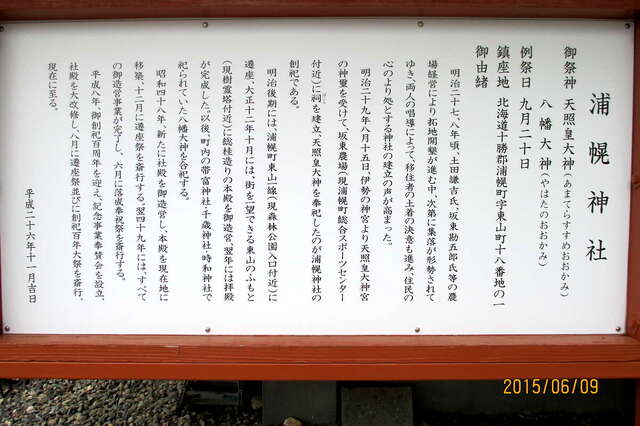 浦幌神社
御祭神 天照皇大神(あまてらすすめおおかみ)
八幡大神(やはたのおおかみ)
例祭日 九月二十日
鎮座地 北海道十勝郡浦幌町字東山町十八番地の一
御由緒
明治二十七、八年頃、土田謙吉氏、坂東勘五郎氏等の農
場経営により拓地開墾が進む中、次第に集落が形勢されて
ゆき、両人の唱導によって、移住者の土着の決意も進み、住民の
心のより処とする神社の建立の声が高まった。
明治二十九年八月十五日、伊勢の神宮より天照皇大神宮
の神璽を受けて、坂東農場(現浦幌町総合スポーツセンター
付近)に祠を建立、天照皇大神を奉祀したのが浦幌神社の
創祀である。
明治後期には、浦幌町東山一線(現森林公園入口付近)に
遷座、大正十二年十月には、街を一望できる東山のふもと
(現樹霊塔付近)に総桂造りの本殿を御造営、翌年には拝殿
が完成した。以後、町内の帯富神社、千歳神社・時和神社で
祀られていた八幡大神を合祀する。
昭和四十八年、新たに社殿を御造営し、本殿を現在地に
移築、十二月に遷座祭を斎行する。翌四十九年には、すべて
の御造営事業が完了し、六月に落成奉祝祭を斎行する。
平成八年、御創祀百周年を迎え、記念事業奉賛会を設立、
社殿を大改修し、八月に遷座祭並びに創祀百年大祭を斎行、
現在に至る。
平成二十六年十一月吉日
2015/06/09